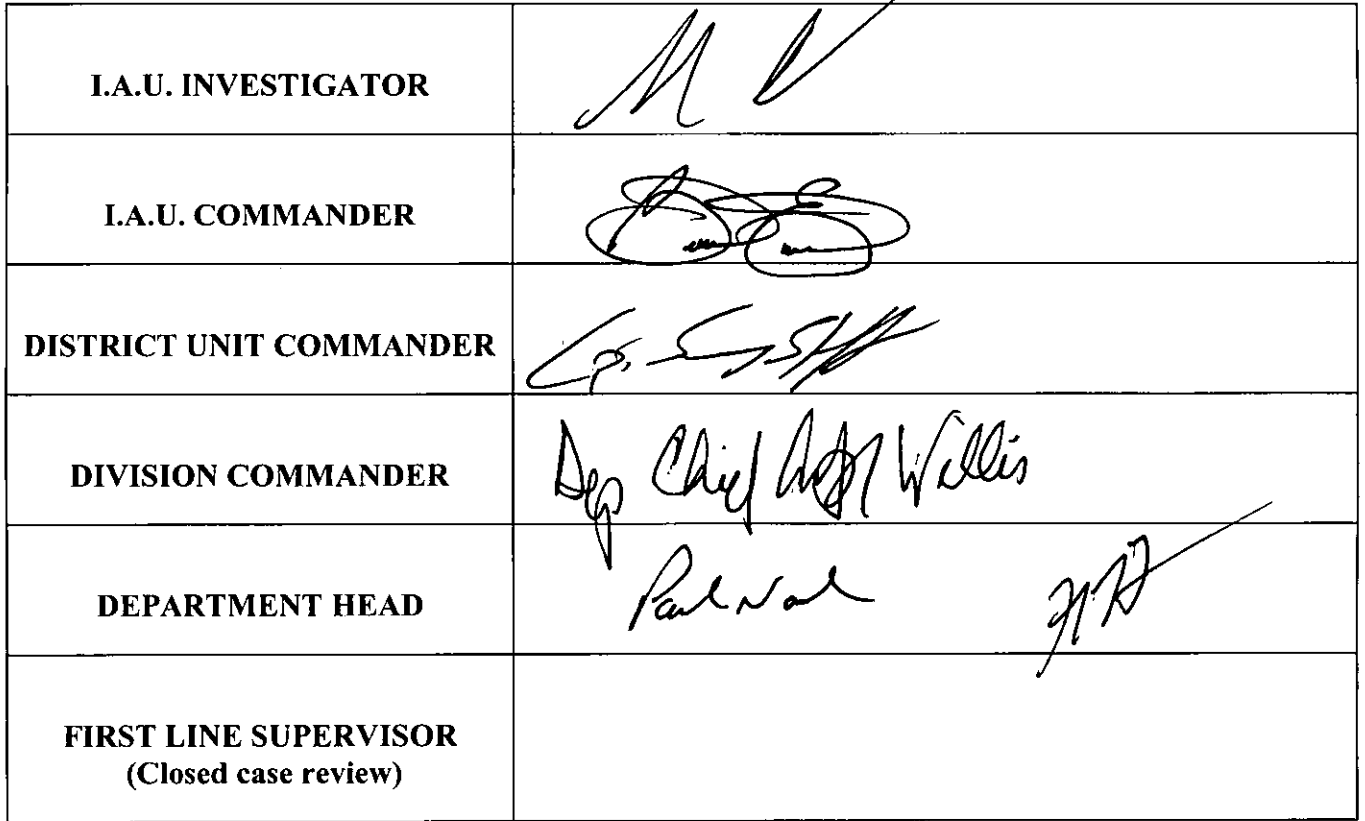 I.A.U. INVESTIGATOR
I.A.U. COMMANDER
DISTRICT UNIT COMMANDER
DIVISION COMMANDER
Dep Chief Willis
DEPARTMENT HEAD
Paul
FIRST LINE SUPERVISOR
(Closed case review)